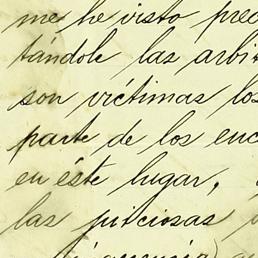 me he visto prec
tándole las arbit
son victimas los
parte de los enc
en éste lugar,
las juiciosas